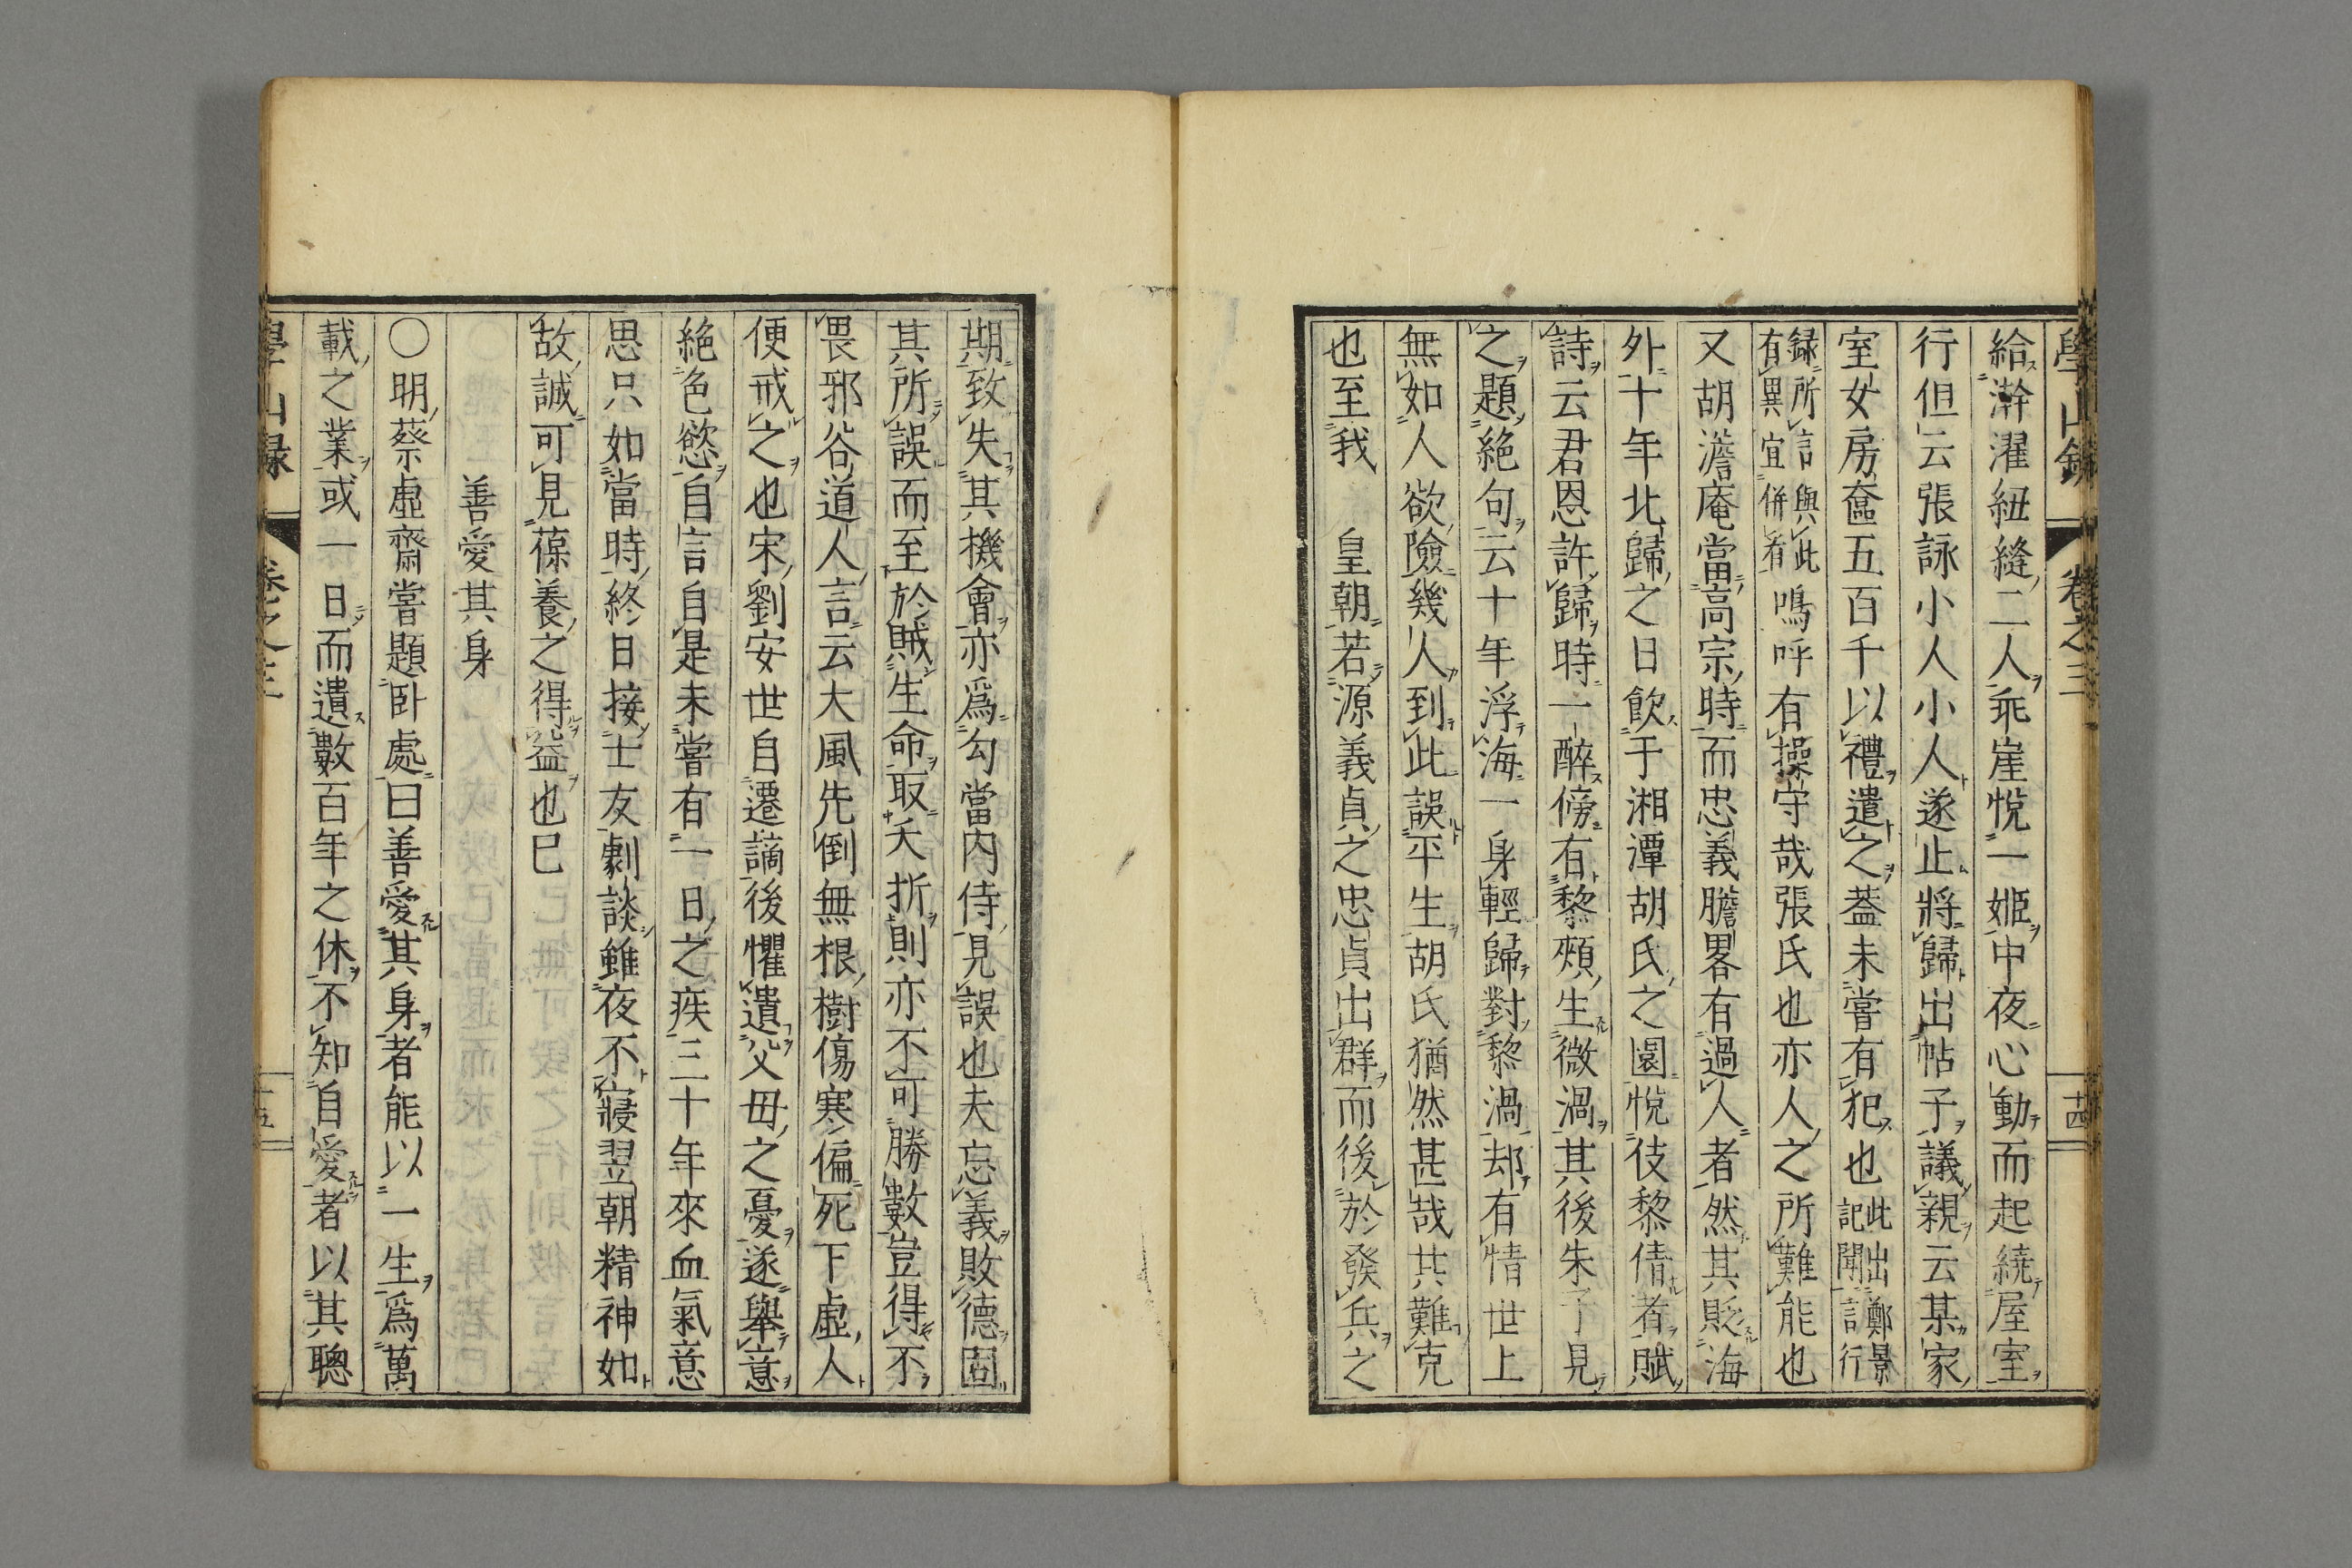 學山録 卷之三 十四
給澣濯紐縫二人乖崖悅一姬中夜心動而起繞屋室
行但云張詠小人小人遂止將歸出帖子議親云某家
室女房奩五百千以禮遣之葢未嘗有犯也此出鄭景
記聞言行
録所言與此
有異宜併看嗚呼有操守哉張氏也亦人之所難能也
又胡澹庵當高宗時而忠義膽畧有過人者然其貶海
外十年北歸之日飮于湘潭胡氏之園悅伎黎倩者賦
詩云君恩許歸時一醉傍有黎頰生微渦其後朱子見
之題絶句云十年浮海一身輕歸對黎渦却有情世上
無如人欲險幾人到此誤平生胡氏猶然甚哉其難克
也至我 皇朝若源義貞之忠貞出群而後於發兵之
期致失其機會亦爲勾當內侍見誤也夫忘義敗德固
其所誤而至於賊生命取夭折則亦不可勝數豈得不
畏邪谷道人言云大風先倒無根樹傷寒偏死下虛人
便戒之也宋劉安世自遷謫後懼遺父母之憂遂舉意
絶色慾自言自是未嘗有一日之疾三十年來血氣意
思只如當時終日接士友劇談雖夜不寢翌朝精神如
故誠可見葆養之得益也巳
善愛其身
〇明蔡虛齋嘗題卧處曰善愛其身者能以一生爲萬
載之業或一日而遺數百年之休不知自愛者以其聰
學山録 卷之三 十五